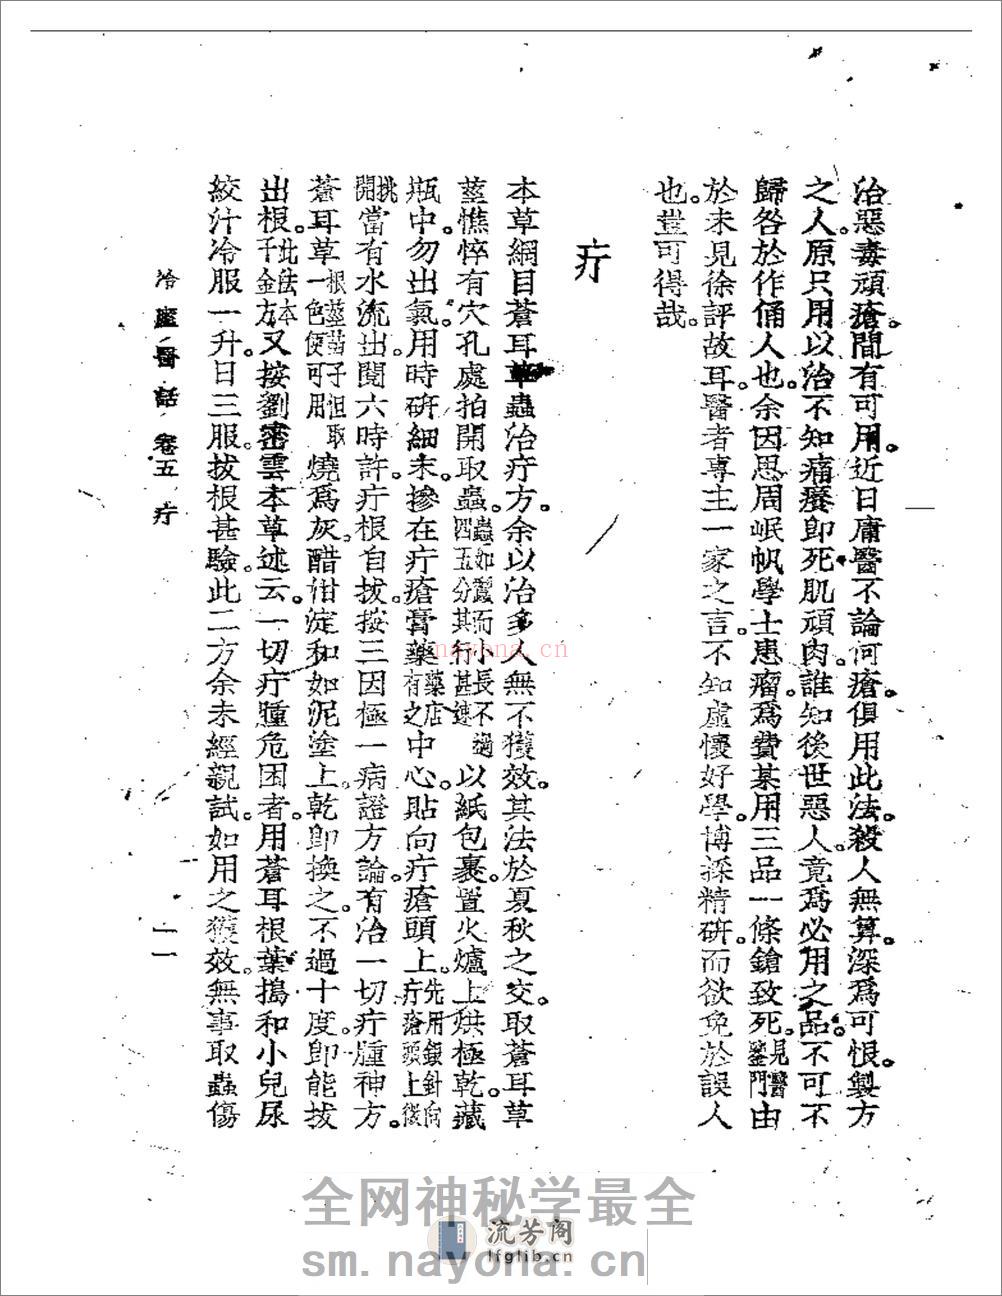 治惡毒頑瘡。間有可用。近日庸醫不論何瘡。俱用此法。殺人無算。深爲可恨。製方
之人。原只用以治不知痛癢卽死肌頑肉。誰知後世惡人。竟爲必用之品。不可不
歸咎於作俑人也。余因思周岷帆學士患瘤。爲費某用三品一條鎗致死。見醫鑒門由
於未見徐評故耳。醫者專主一家之言。不知虛懷好學。博採精研。而欲免於誤人
也。豈可得哉。
疔
本草綱目蒼耳草蟲治疔方。余以治多人無不獲效。其法於夏秋之交。取蒼耳草
莖憔悴有穴孔處拍開取蟲。蟲如蠶而小長不過四五分其行甚速以紙包裹。置火爐上烘極乾。藏
瓶中勿出氣。用時研細末。摻在疔瘡膏藥藥店有之中心。貼向疔瘡頭上。先用銀針向疔瘡頭上微
挑開當有水流出。閱六時許。疔根自拔。按三因極一病證方論。有治一切疔腫神方。
蒼耳草根莖苗子但取一色便可用燒爲灰。醋泔淀和如泥塗上。乾卽換之。不過十度。卽能拔
出根。此法本千金方又按劉密雲本草述云。一切疔腫危困者。用蒼耳根葉搗和小兒尿
絞汁冷服一升。日三服。拔根甚驗。此二方余未經親試。如用之獲效。無事取蟲傷
冷廬醫話 卷五 疔
一一
nayona.cn
全网神秘学最全
流芳阁
lfglib.cn
sm.nayona.cn